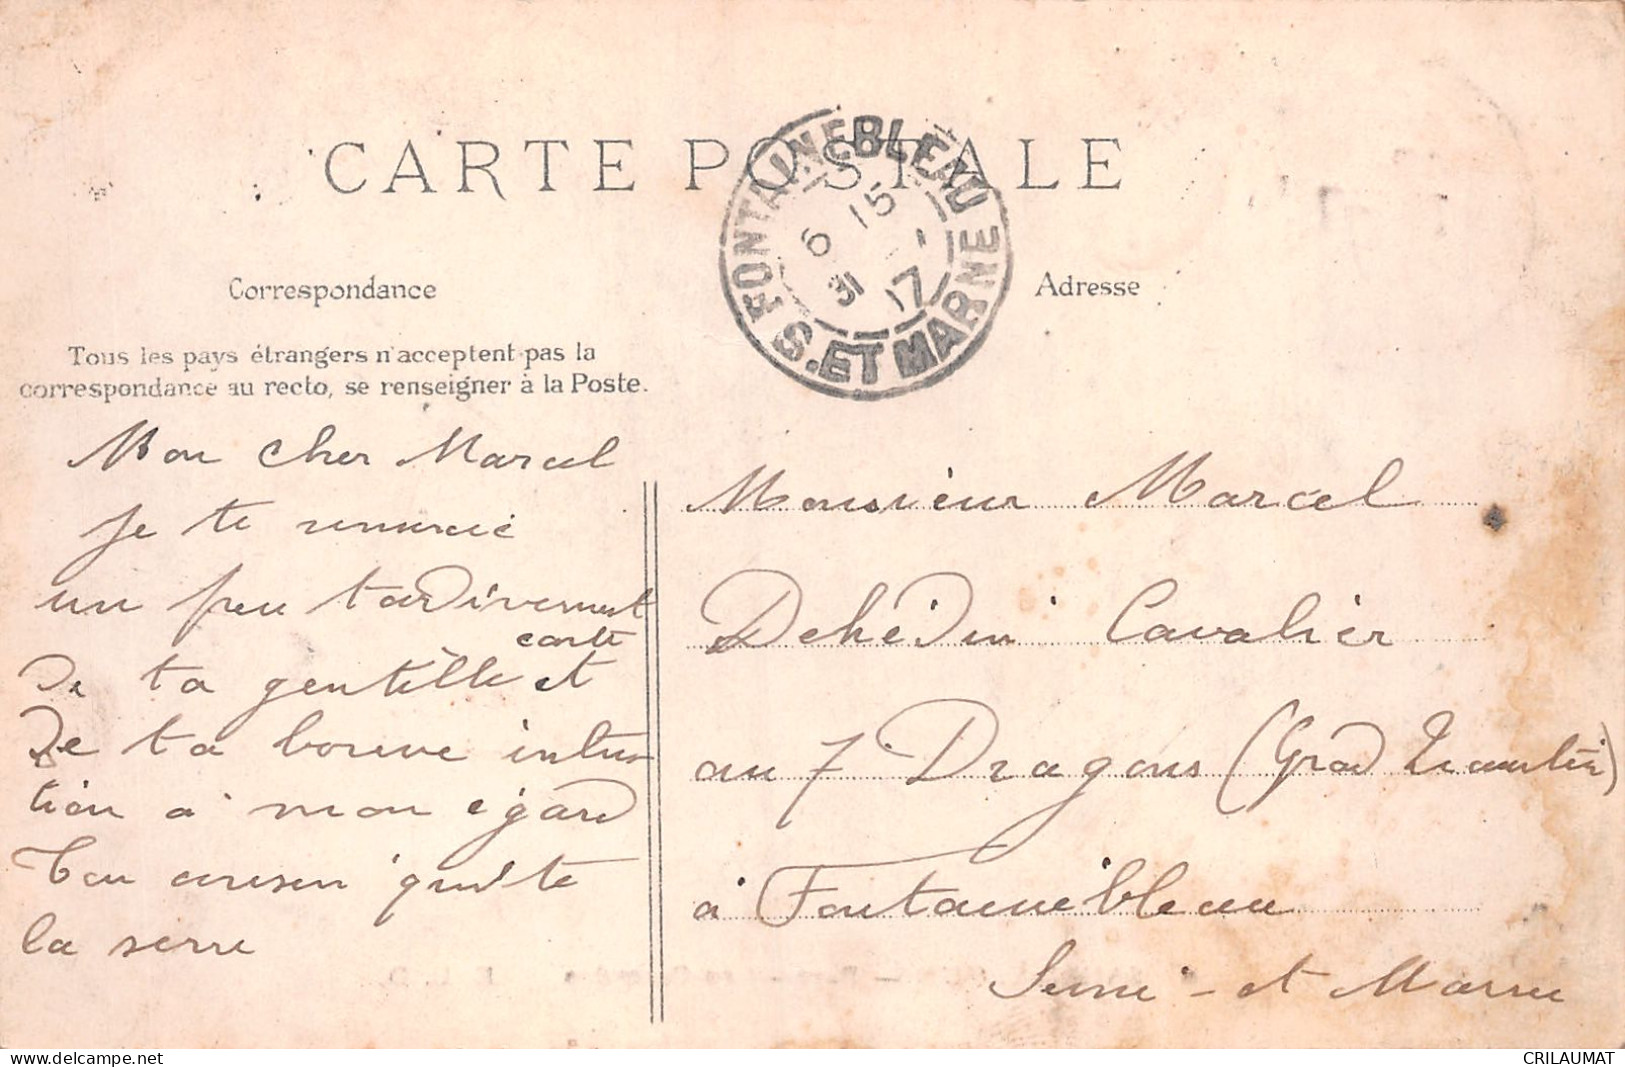 CARTE POSTALE
FONTAINEBLEAU
6 15
31 - 1
17
S. ET MARNE
Correspondance
Adresse
Tous les pays étrangers n'acceptent pas la
correspondance au recto, se renseigner à la Poste.
Mon cher Marcel
je te remercie
un peu tardivement
carte
De ta gentille et
De ta bonne inten
tion à mon égard
Ton cousin qui te
la serre
Monsieur Marcel
Dehédin Cavalier
au 7 Dragons (Grad
à Fontainebleau
Seine-et Marne
CRILAUMAT